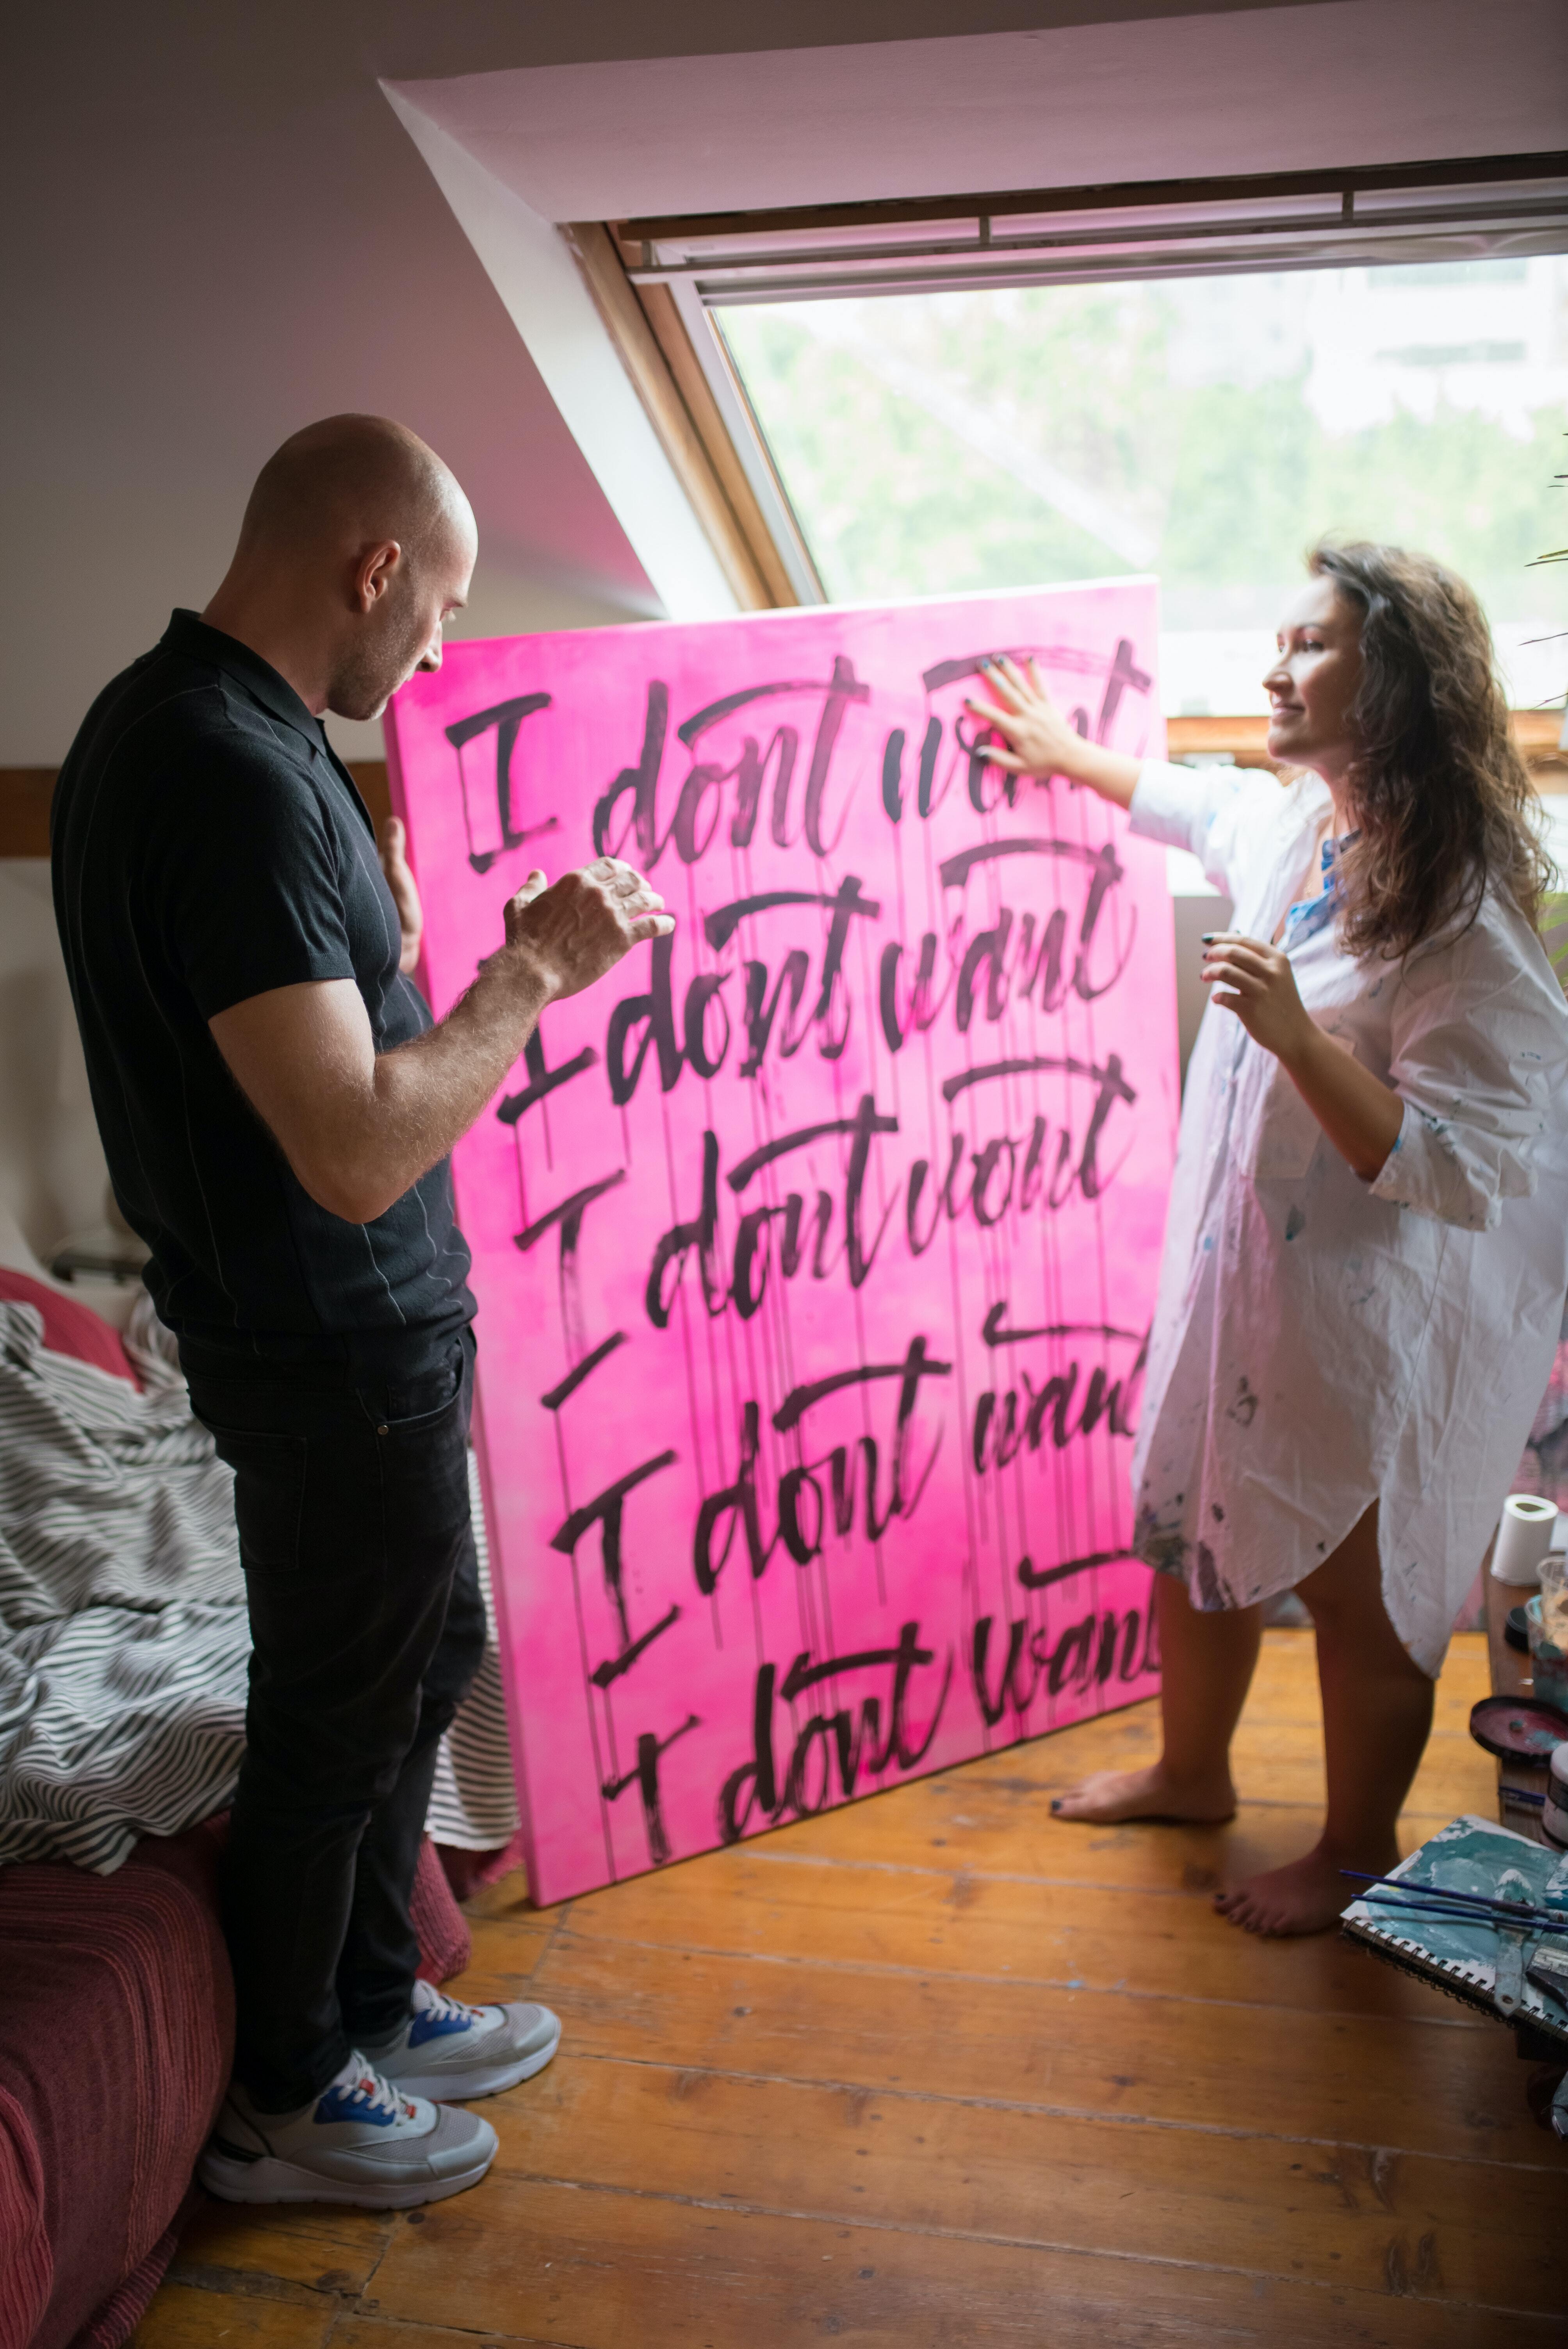 I dont want
I dont want
I dont want
I dont want
I dont want